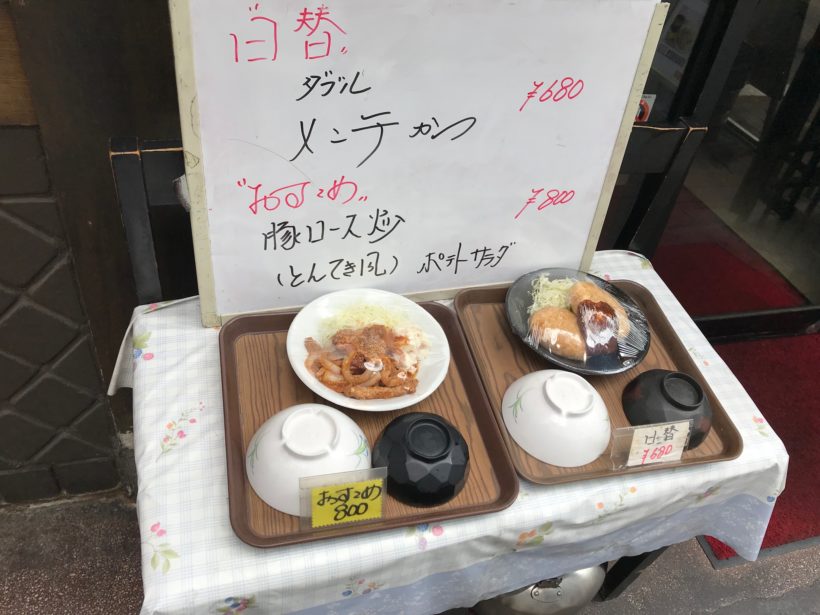 "日替"
ダブル ¥680
メンチカツ
"おすすめ" ¥800
豚ロース炒
(とんてき風) ポテトサラダ
おすすめ
800
日替
¥680